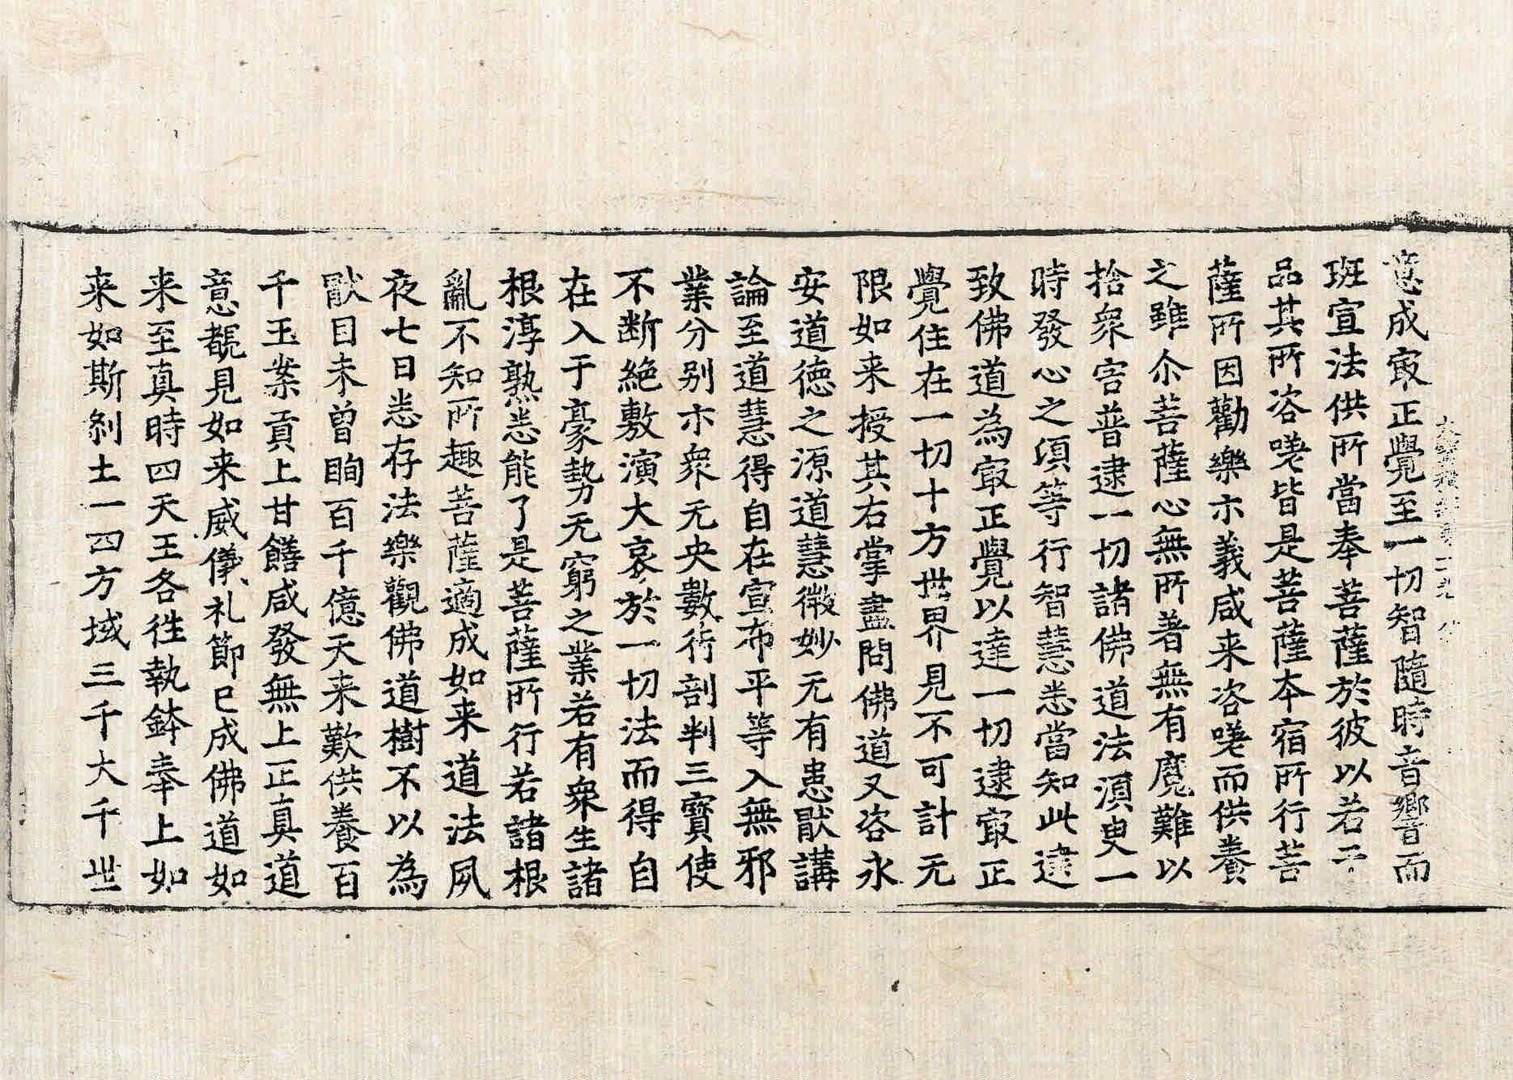 意成㝡正覺至一切智隨時音響而
班宣法供所當奉菩薩於彼以若干
品其所咨嗟皆是菩薩本宿所行菩
薩所因勸樂示義咸来咨嗟而供養
之雖尒菩薩心無所著無有魔難以
捨衆害普逮一切諸佛道法湏臾一
時發心之湏等行智慧悉當知此逮
致佛道為㝡正覺以達一切逮㝡正
覺住在一切十方世界見不可計无
限如来授其右掌盡問佛道又咨永
安道德之源道慧微妙无有患猒講
論至道慧得自在宣布平等入無邪
業分别示衆无央數術剖判三寶使
不断絶敷演大哀於一切法而得自
在入于豪勢无窮之業若有衆生諸
根淳熟悉能了是菩薩所行若諸根
亂不知所趣菩薩適成如来道法夙
夜七日悉存法樂觀佛道樹不以為
猒目未曾眴百千億天来歎供養百
千玉案貢上甘饍咸發無上正真道
意覩見如来威儀礼節已成佛道如
来至真時四天王各徃執鉢奉上如
来如斯剎土一四方域三千大千世